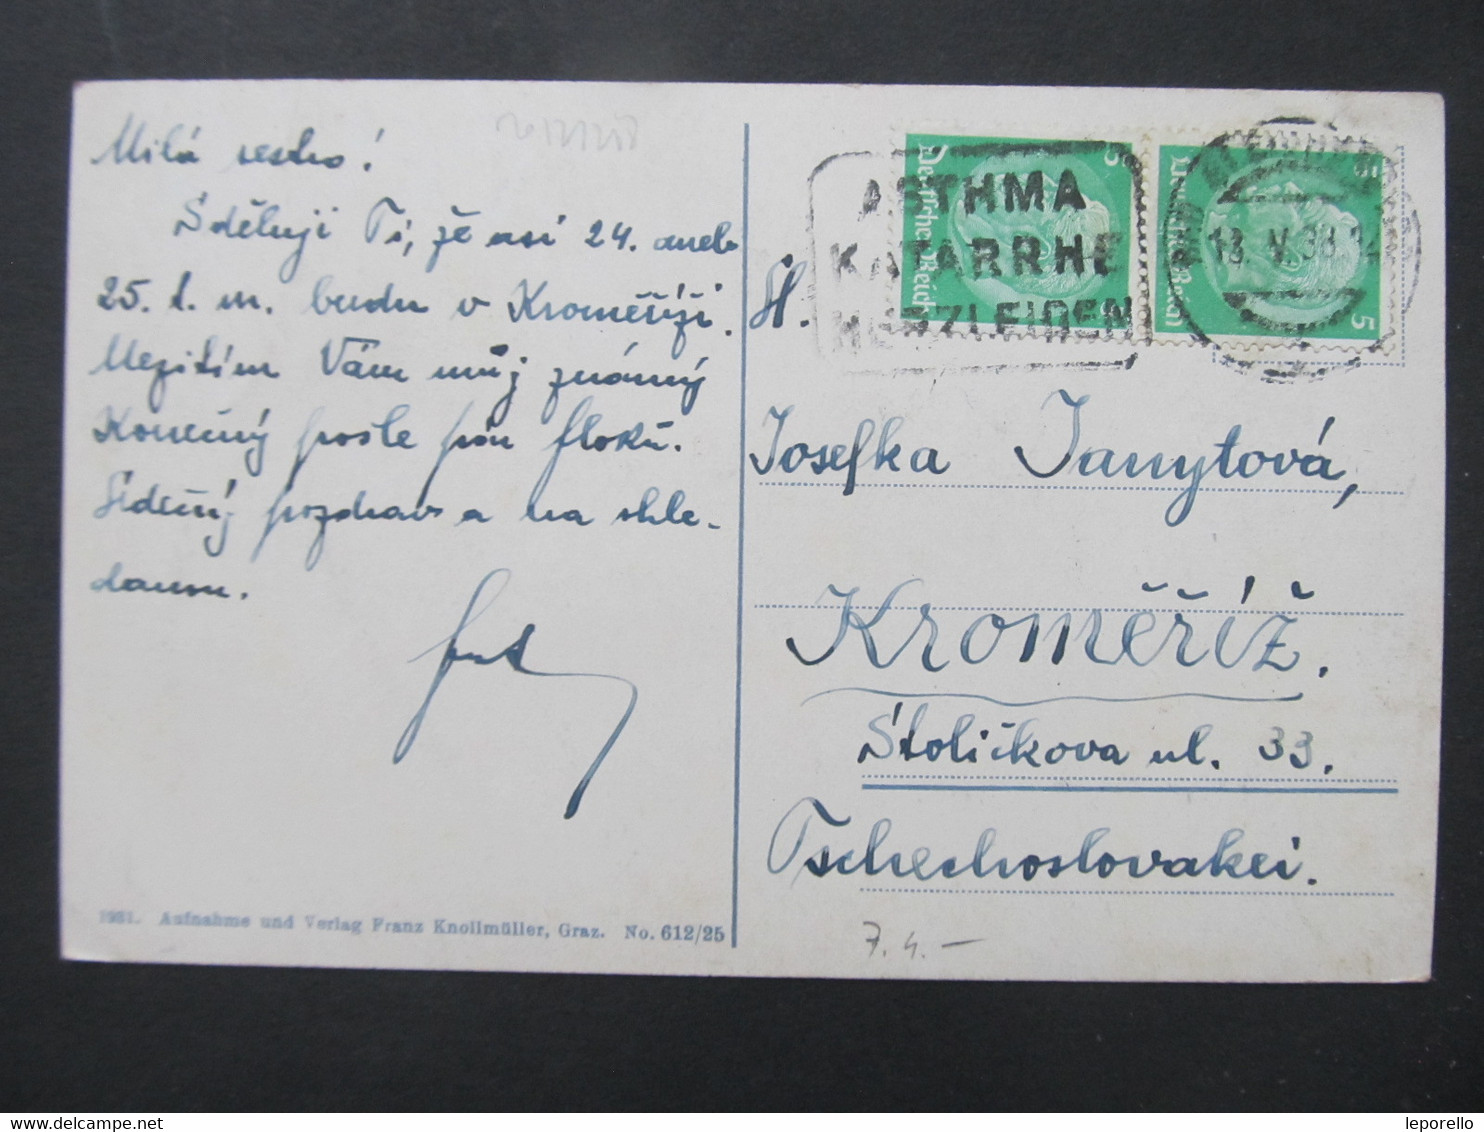 Milá sestro!
Sděluji Ti, že asi 24. aneb
25. t. m. budu v Kroměříži.
Mezitím Vám můj známý
Konečný pošle pár floků.
Srdečný pozdrav a na shle-
danou.
1931. Aufnahme und Verlag Franz Knollmüller, Graz. No. 612/25
ASTHMA
KATARRHE
HERZLEIDEN
Deutsches Reich
5
5
5
13. V. 38.
Sl.
Josefka Janytová,
Kroměříž.
Stoličkova ul. 33.
Tschechoslovakei.
7.4.–
leporello